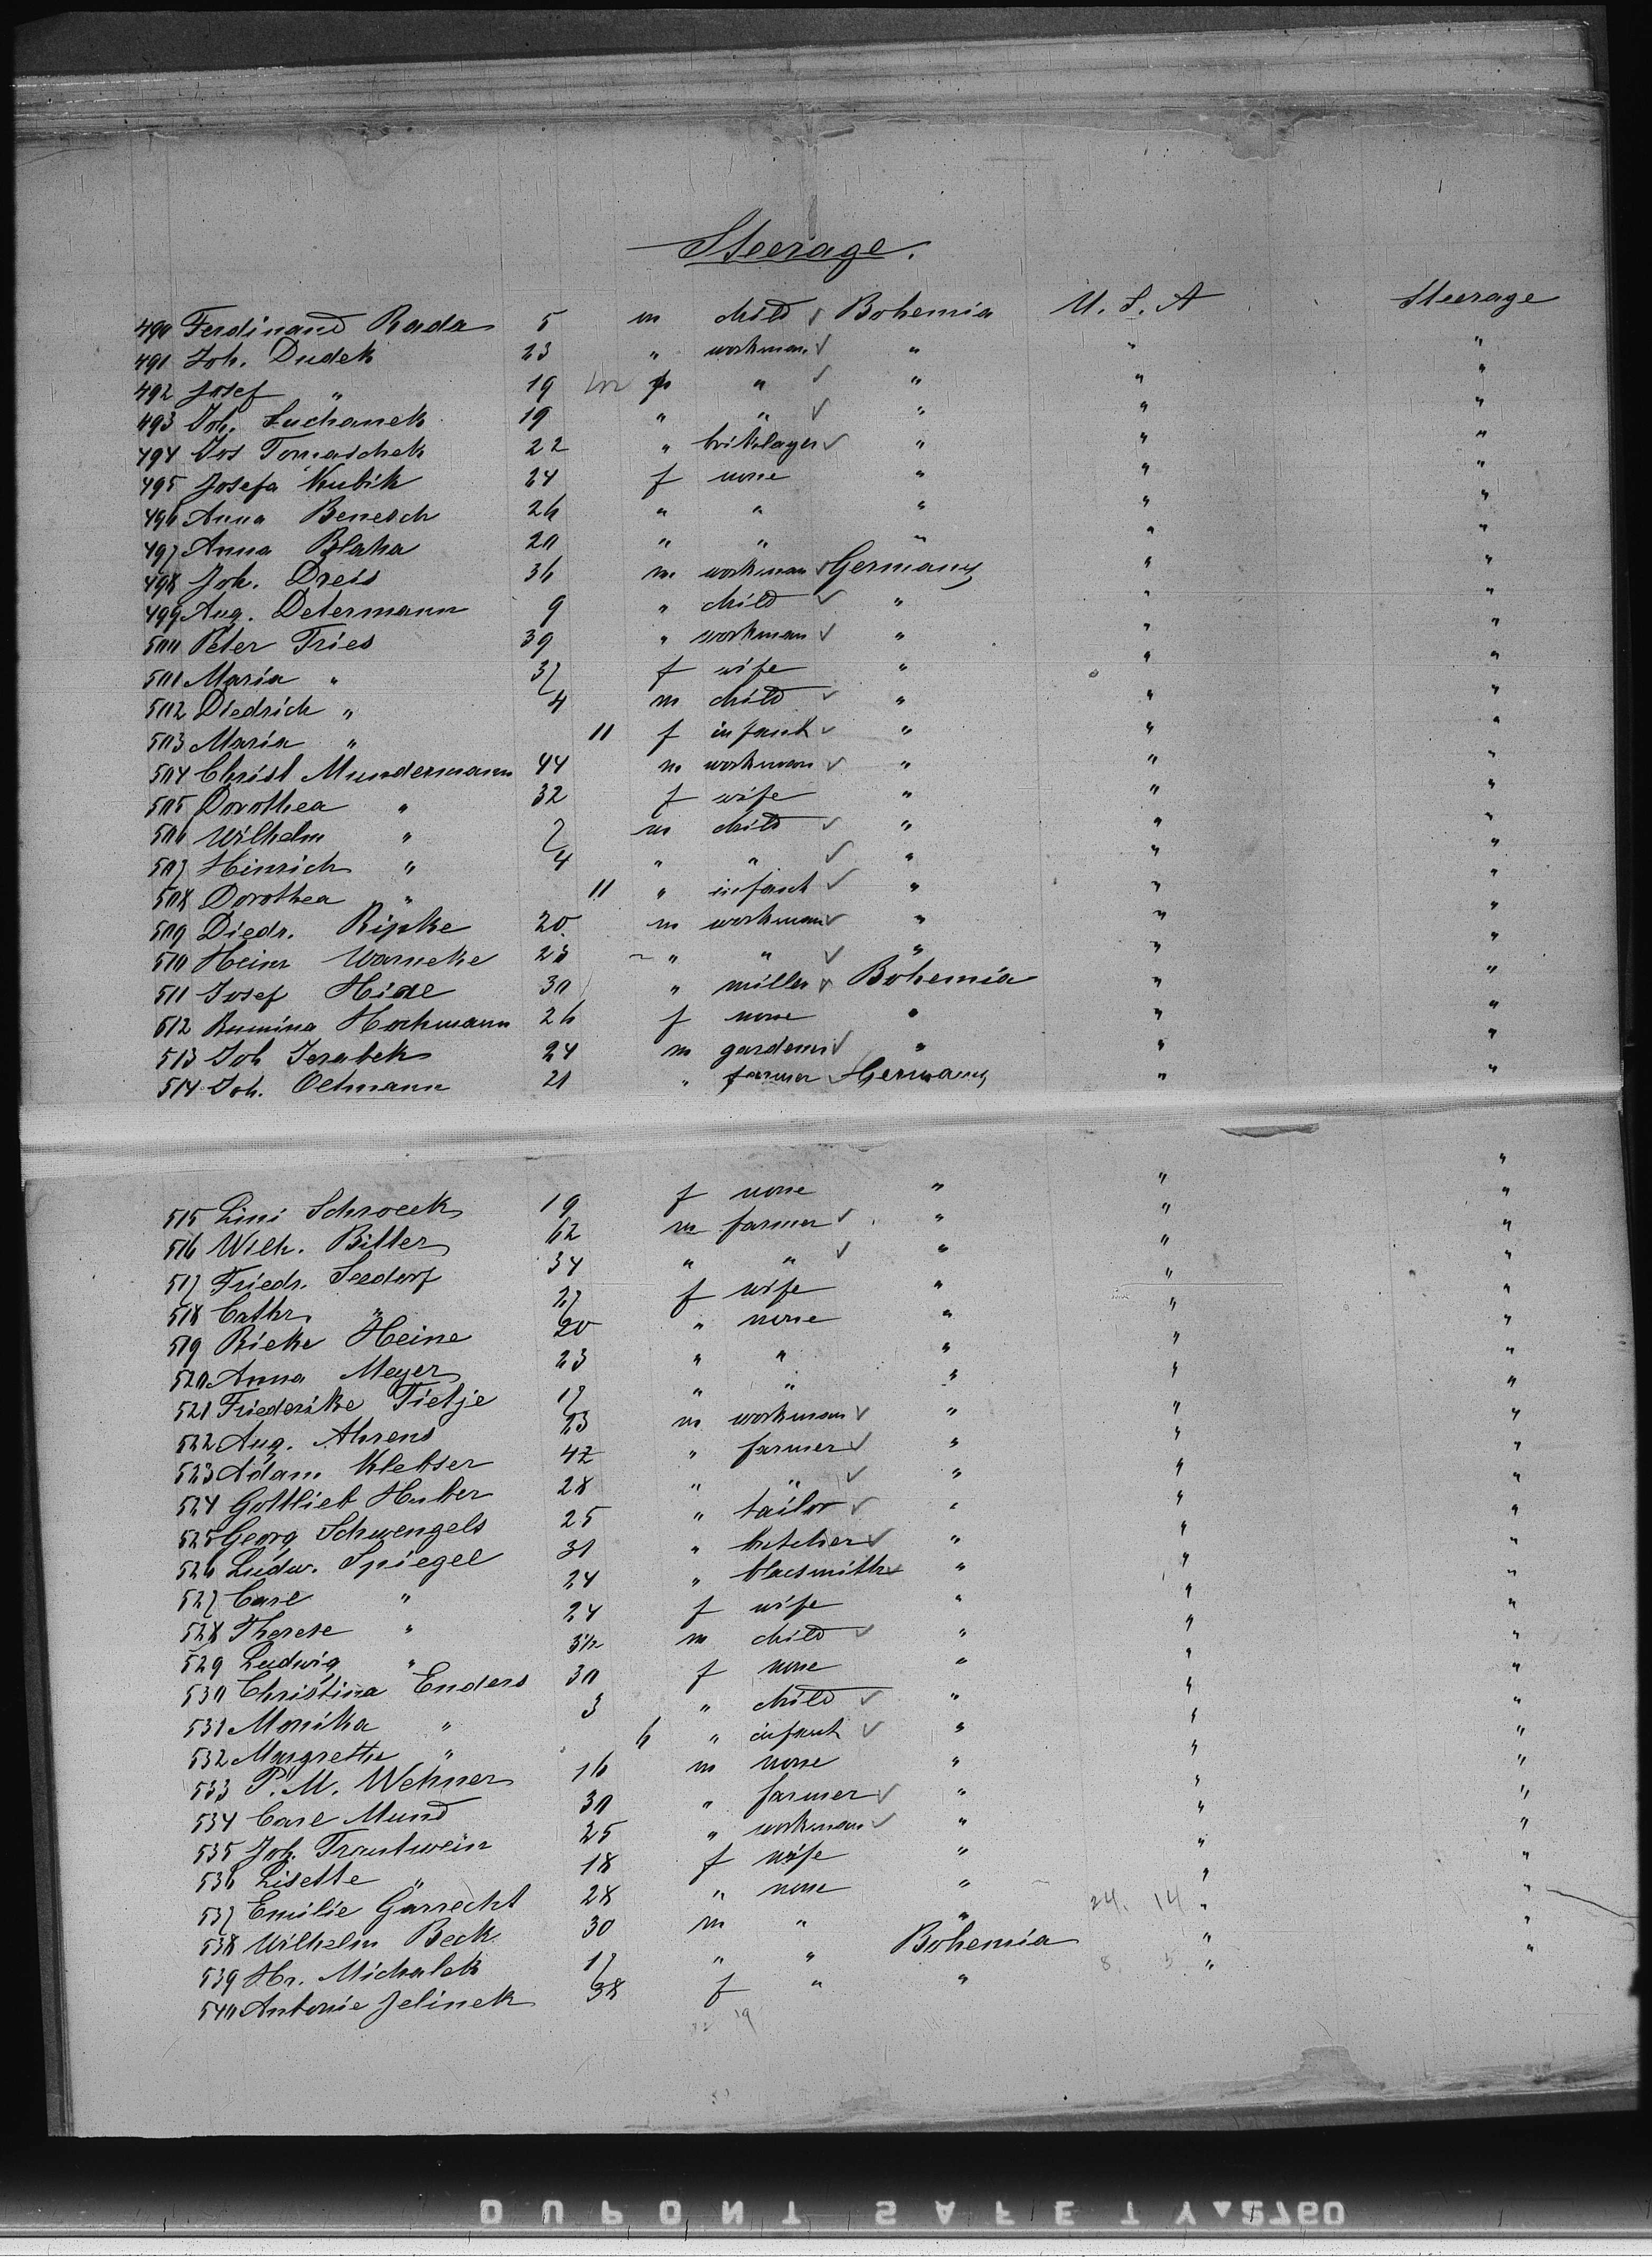 Steerage.
490 Ferdinand Rada 5 m child ✓ Bohemia U. S. A Steerage
491 Joh. Dudek 23 " workman ✓ " " "
492 Josef " 19 m " ✓ " " "
493 Joh. Suchanek 19 " " ✓ " " "
494 Jos Tomaschek 22 " briklayer ✓ " " "
495 Josefa Kubik 24 f none " " "
496 Anna Benesch 26 " " " " "
497 Anna Blaha 20 " " " " "
498 Joh. Dreis 36 m workman ✓ Germany " "
499 Aug. Determann 9 " child ✓ " " "
500 Peter Fries 39 " workman ✓ " " "
501 Maria " 37 f wife " " "
502 Diedrich " 4 m child ✓ " " "
503 Maria " 11 f infant ✓ " " "
504 Christ Mundermann 44 m workman ✓ " " "
505 Dorothea " 32 f wife " " "
506 Wilhelm " 7 m child ✓ " " "
507 Hinrich " 4 " " ✓ " " "
508 Dorothea " 11 " infant ✓ " " "
509 Diedr. Ripke 20 m workman ✓ " " "
510 Heinr Warneke 23 " " ✓ " " "
511 Josef 30 " miller ✓ Bohemia " "
512 Hochmann 26 f none " " "
513 Joh Jerabek 24 m gardener ✓ " " "
514 Joh. Oltmann 21 " farmer ✓ Germany " "
515 Lini Schroeck 19 f none " " "
516 Wilh. Bitter 62 m farmer ✓ " " "
517 Friedr. Seedorf 34 " " ✓ " " "
518 Cathr. " 27 f wife " " "
519 Rieke Heine 20 " none " " "
520 Anna Meyer 23 " " " " "
521 Friederike Tietje 17 " " " " "
522 Aug. Ahrens 23 m workman ✓ " " "
523 Adam Klebser 42 " farmer ✓ " " "
524 Gottlieb Huber 28 " " ✓ " " "
525 Georg Schwengels 25 " tailor ✓ " " "
526 Ludw. Spiegel 31 " butcher ✓ " " "
527 Carl " 24 " blacsmith ✓ " " "
528 Therese " 24 f wife " " "
529 Ludwig " 3½ m child ✓ " " "
530 Christina Enders 30 f none " " "
531 Monika " 3 " child ✓ " " "
532 Margrethe " 6 " infant ✓ " " "
533 P. M. Wehner 16 m none " " "
534 Carl Mund 30 " farmer ✓ " " "
535 Joh. Trautwein 25 " workman ✓ " " "
536 Lisette " 18 f wife " " "
537 Emilie Garrecht 28 " none " " "
538 Wilhelm Beck 30 m " " 24. 14 " "
539 Hr. Michalek 17 " " Bohemia " "
540 Antonie Jelinek 38 f " " 8. 5 " "
19
DUPONT SAFETY